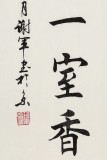 一室香
月谢军书于京